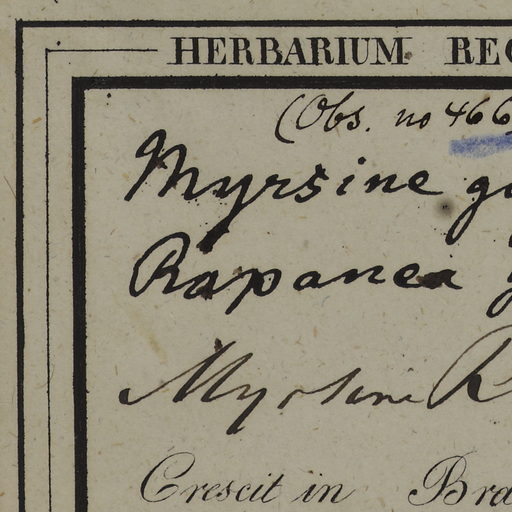 HERBARIUM REG
(Obs. no 466
Myrsine g
Rapanea g
Myrsine R
Crescit in Bra